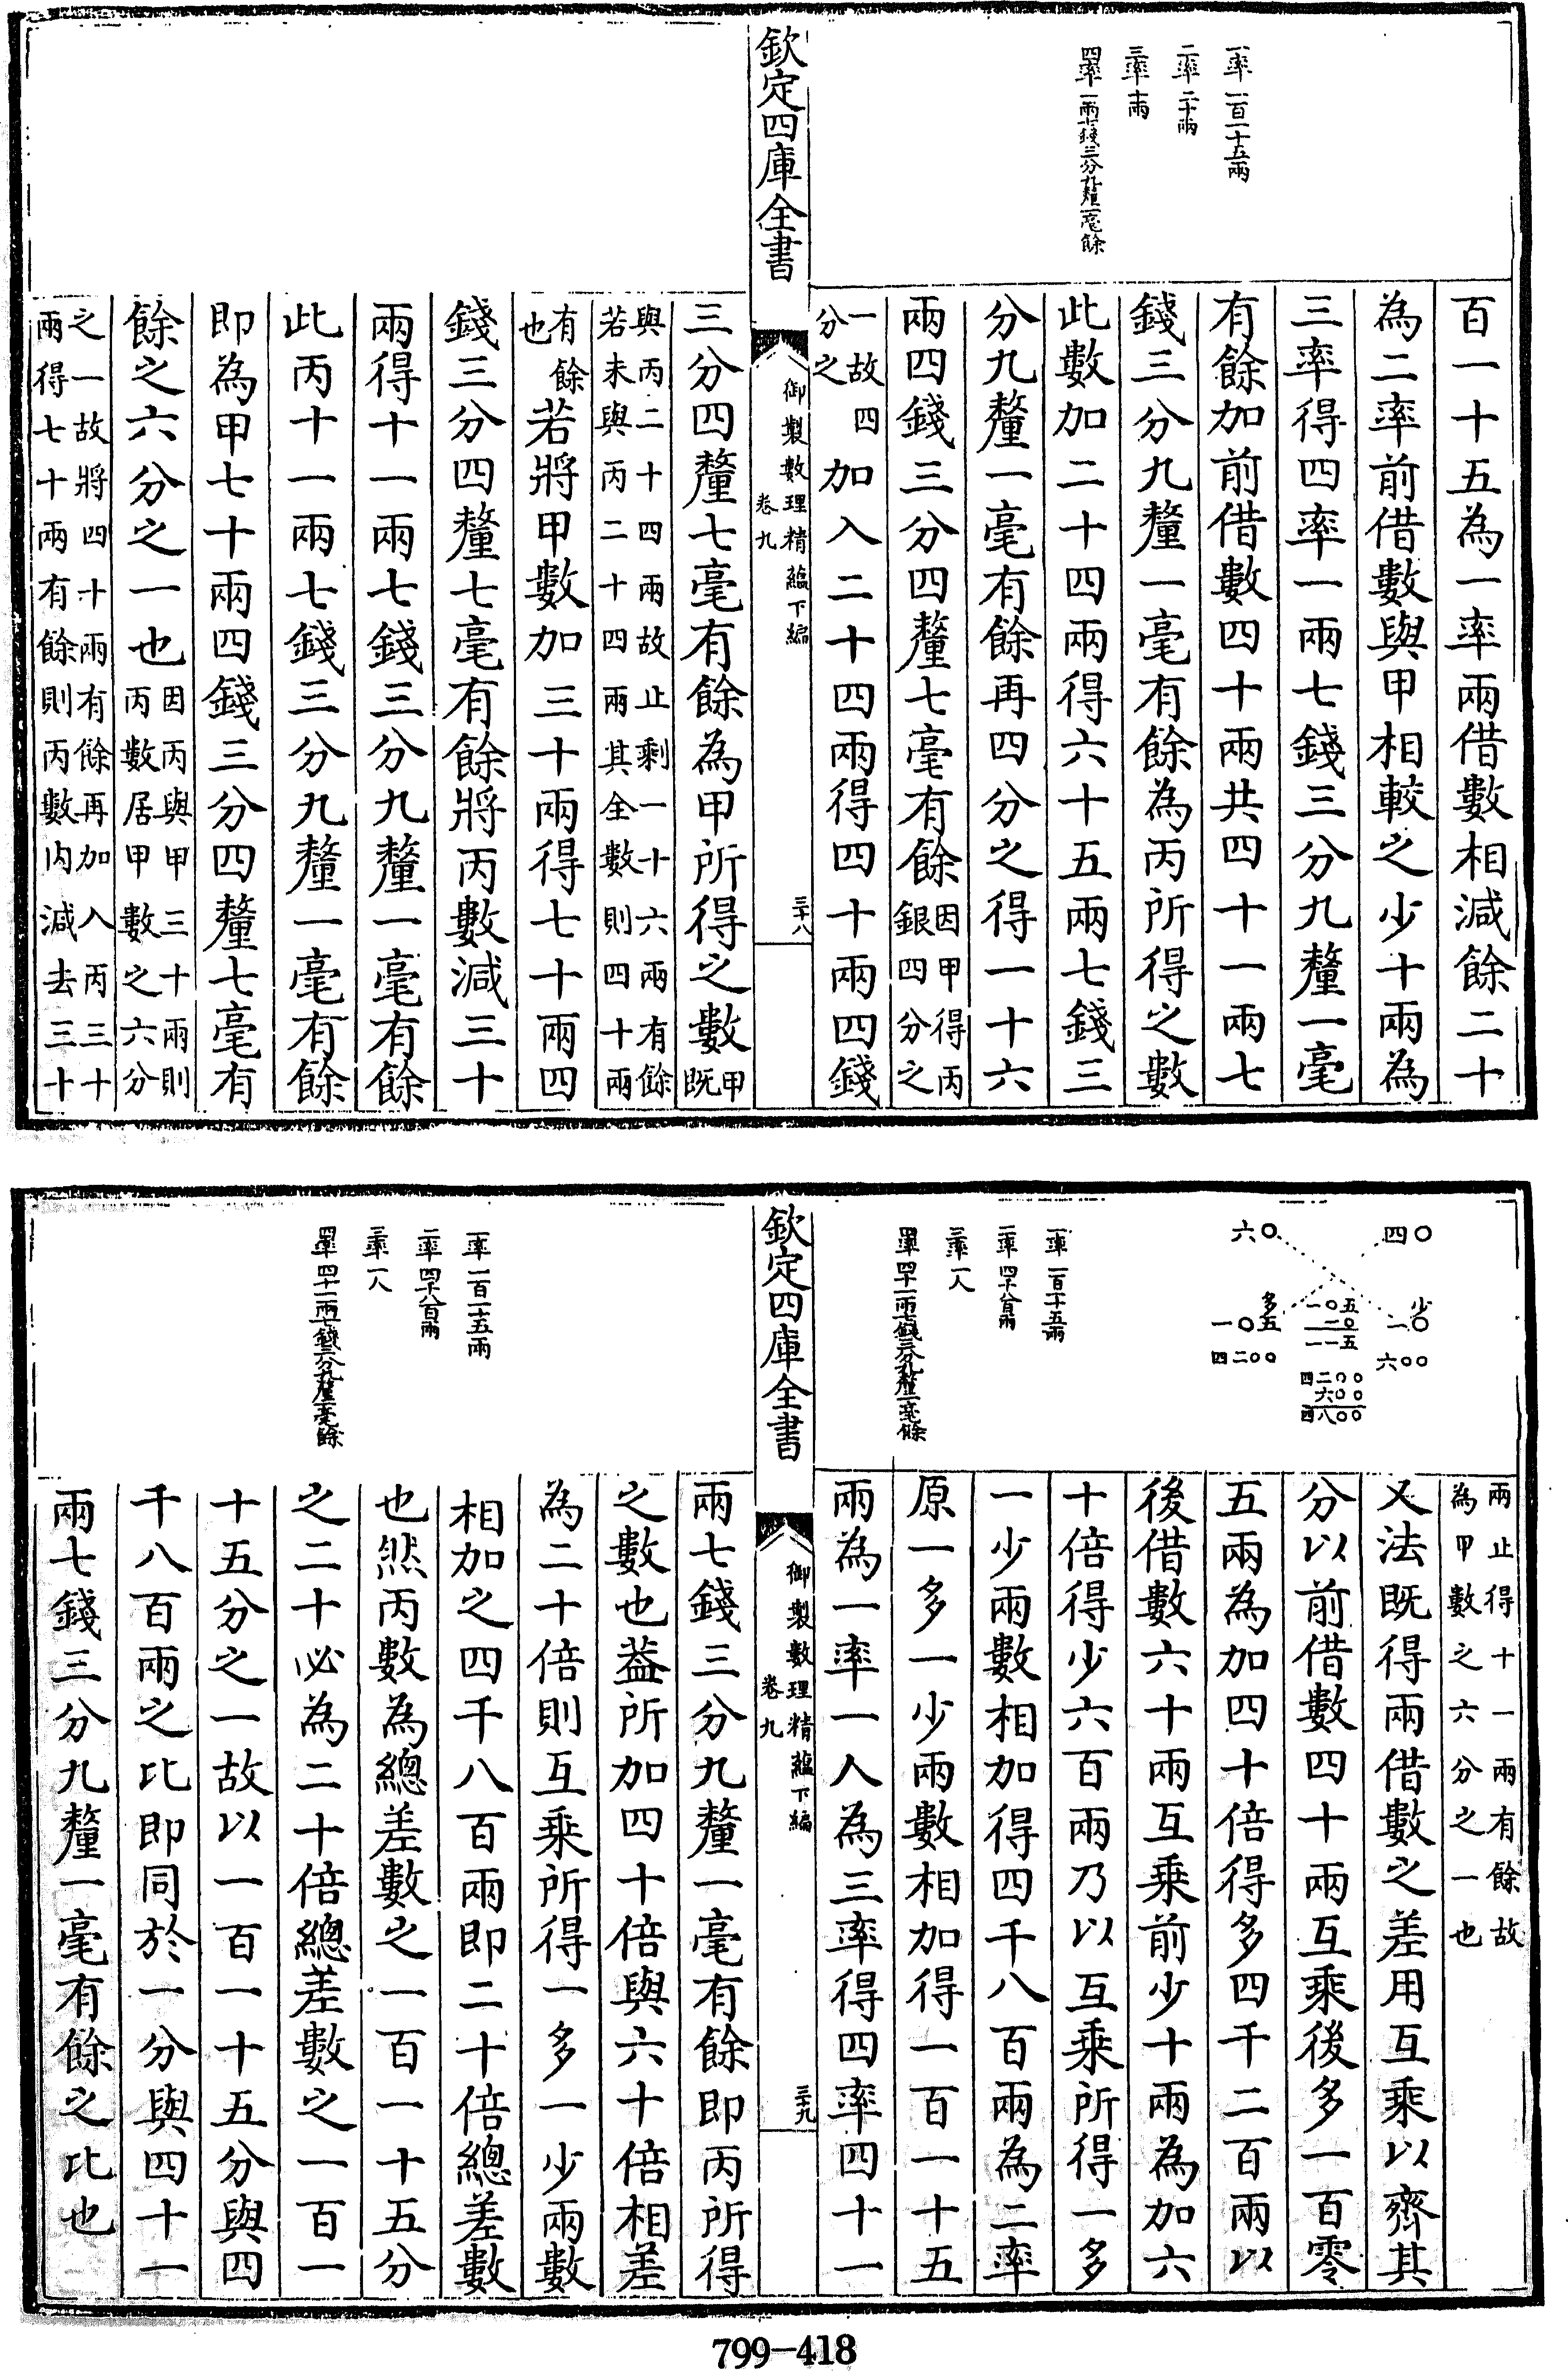 一率一百一十五兩
二率二十兩
三率十兩
四率一兩七錢三分九釐一毫餘
百一十五為一率兩借數相減餘二十
為二率前借數與甲相較之少十兩為
三率得四率一兩七錢三分九釐一毫
有餘加前借數四十兩共四十一兩七
錢三分九釐一毫有餘為丙所得之數
此數加二十四兩得六十五兩七錢三
分九釐一毫有餘再四分之得一十六
兩四錢三分四釐七毫有餘因甲得丙
銀四分之
一故四
分之加入二十四兩得四十兩四錢
欽定四庫全書
御製數理精蘊下編
卷九
三十八
三分四釐七毫有餘為甲所得之數甲
既
與丙二十四兩故止剩一十六兩有餘
若未與丙二十四兩其全數則四十兩
有餘
也若將甲數加三十兩得七十兩四
錢三分四釐七毫有餘將丙數減三十
兩得十一兩七錢三分九釐一毫有餘
此丙十一兩七錢三分九釐一毫有餘
即為甲七十兩四錢三分四釐七毫有
餘之六分之一也因丙與甲三十兩則
丙數居甲數之六分
之一故將四十兩有餘再加入丙三十
兩得七十兩有餘則丙數內減去三十
四〇
少
一〇
六〇〇
六〇
多
一〇五
四二〇〇
一〇五
一〇
一一五
四二〇〇
六〇〇
四八〇〇
一率一百一十五兩
二率四千八百兩
三率一人
四率四十一兩七錢三分九釐一毫餘
兩止得十一兩有餘故
為甲數之六分之一也
又法既得兩借數之差用互乘以齊其
分以前借數四十兩互乘後多一百零
五兩為加四十倍得多四千二百兩以
後借數六十兩互乘前少十兩為加六
十倍得少六百兩乃以互乘所得一多
一少兩數相加得四千八百兩為二率
原一多一少兩數相加得一百一十五
兩為一率一人為三率得四率四十一
欽定四庫全書
御製數理精蘊下編
卷九
三十九
一率一百一十五兩
二率四千八百兩
三率一人
四率四十一兩七錢三分九釐一毫餘
兩七錢三分九釐一毫有餘即丙所得
之數也蓋所加四十倍與六十倍相差
為二十倍則互乘所得一多一少兩數
相加之四千八百兩即二十倍總差數
也然丙數為總差數之一百一十五分
之二十必為二十倍總差數之一百一
十五分之一故以一百一十五分與四
千八百兩之比即同於一分與四十一
兩七錢三分九釐一毫有餘之比也
799-418